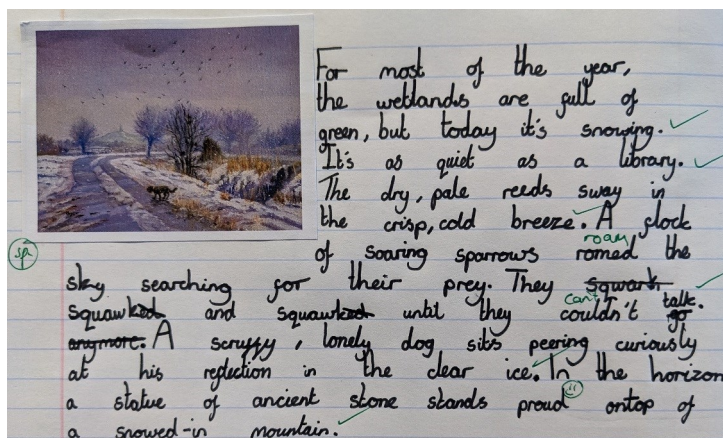 For most of the year,
the wetlands are full of
green, but today it's snowing.
It's as quiet as a library.
The dry, pale reeds sway in
the crisp, cold breeze. A flock
roam
sp
of soaring sparrows romed the
sky searching for their prey. They squark
can't
squawked and squawked until they couldn't talk. go
anymore. A scruffy, lonely dog sits peering curiously
at his reflection in the clear ice. In the horizon
a statue of ancient stone stands proud ontop of
a snowed-in mountain.